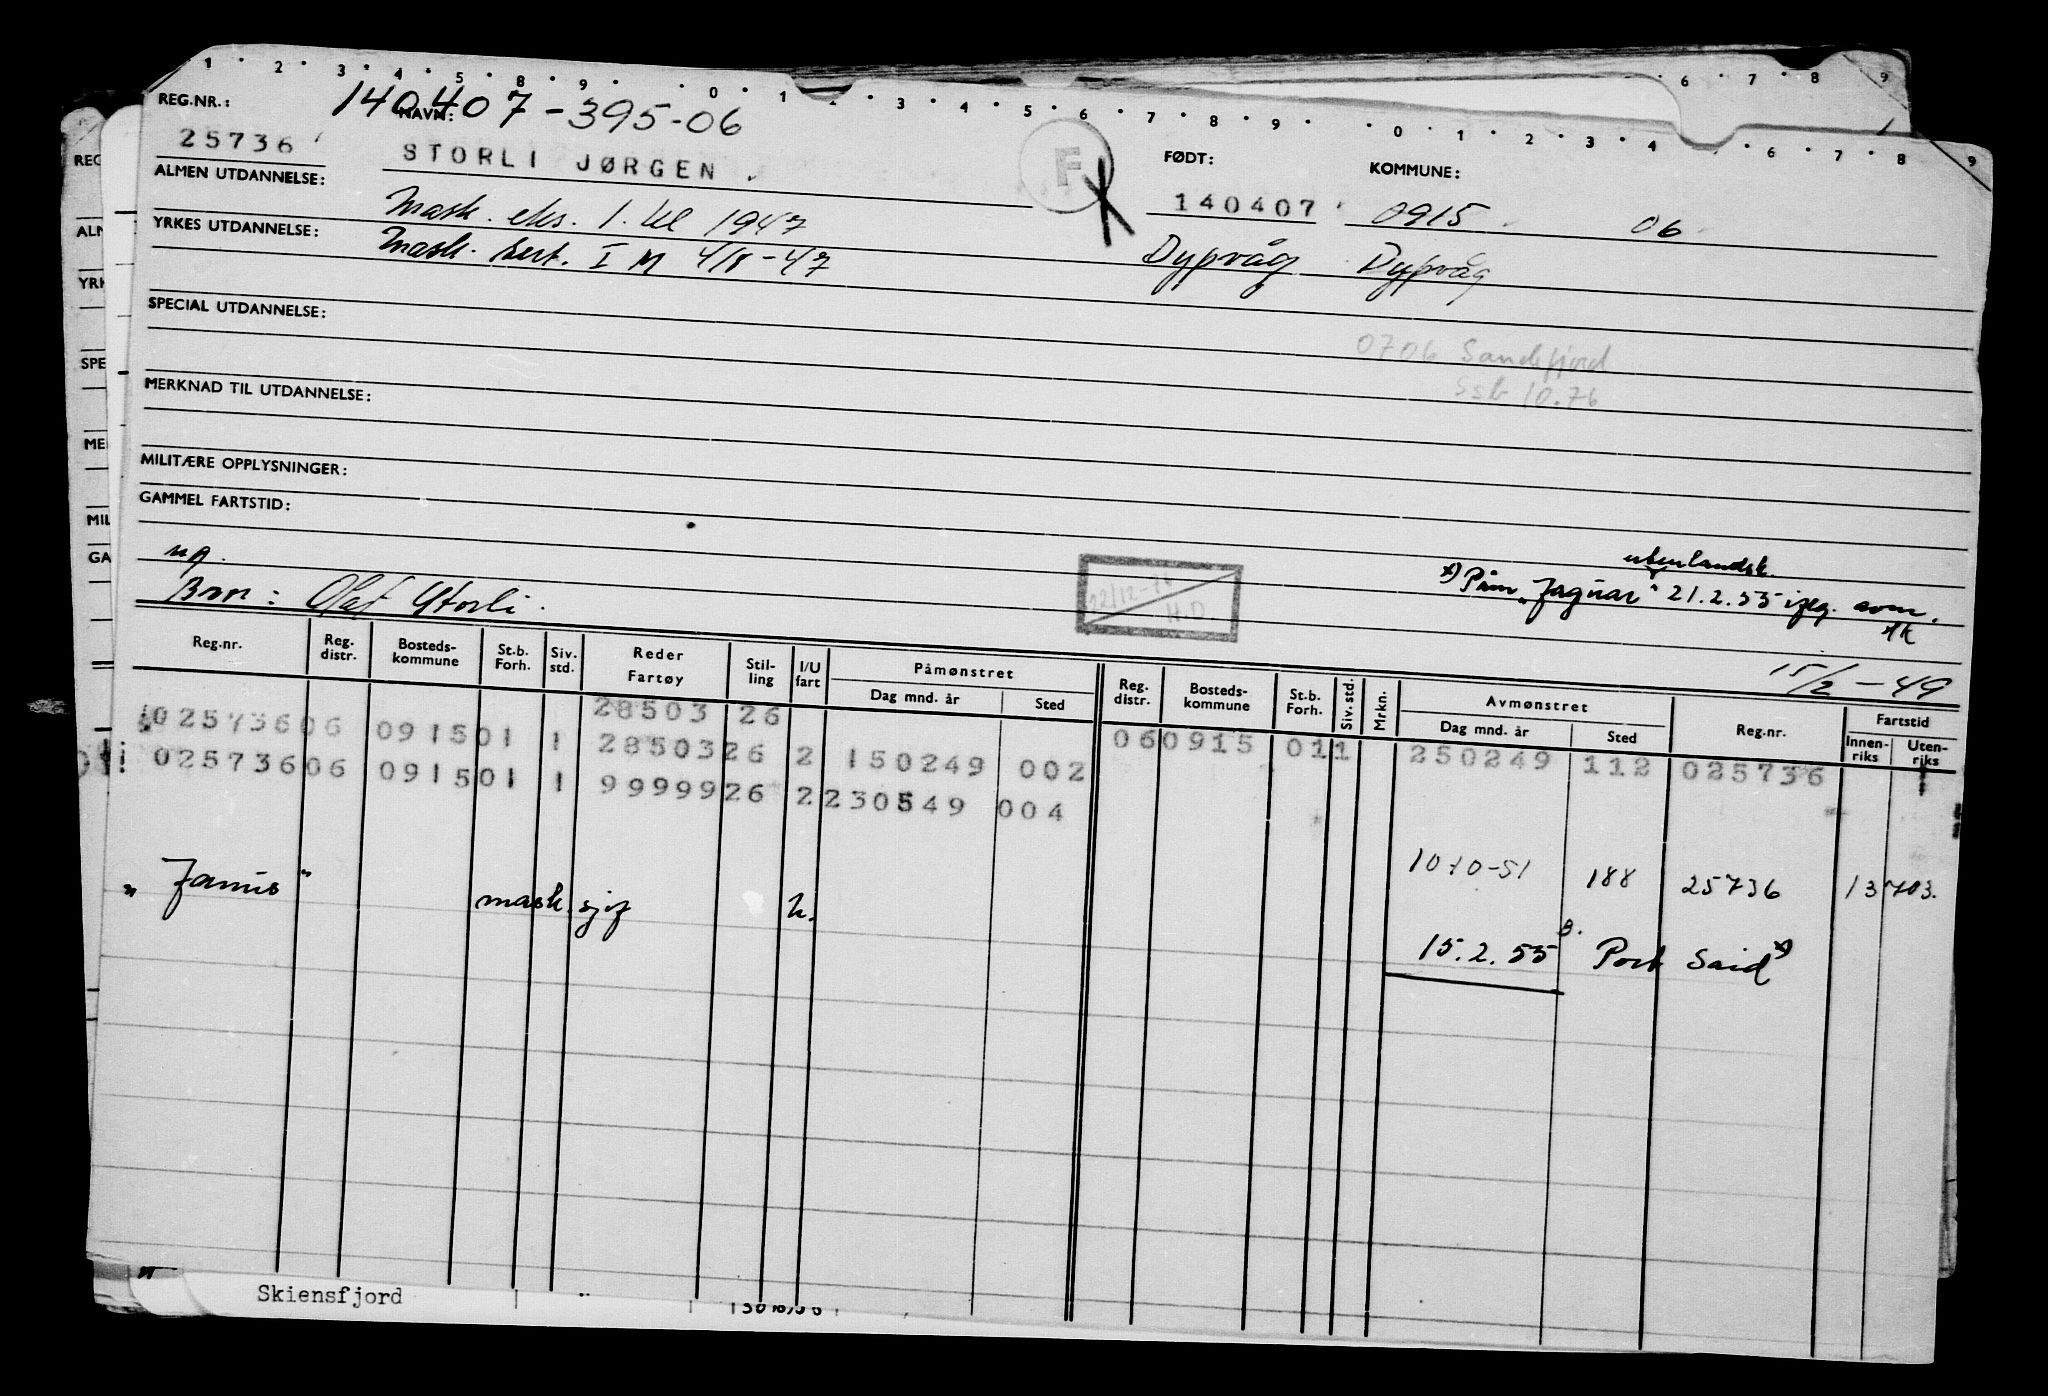 1 · 2 · 3 · 4 · 5 · 8 · 9 · 0 · 1 2 · 3 · 4 · 5 · 6 · 7 · 8 · 9 · 0 · 1 · 2 · 3 · 4 · 6 · 7 · 8 9
6 · 7 · 8 9
140407-395-06
REG.NR.: NAVN: FØDT: KOMMUNE:
25736 STORLI JØRGEN. F 140407 0915 06
ALMEN UTDANNELSE: Mask. eks. 1. kl 1947
YRKES UTDANNELSE: Mask. sert. I M 4/8-47 Dypvåg Dypvåg
SPECIAL UTDANNELSE:
0706 Sandefjord
Ssb 10.76
MERKNAD TIL UTDANNELSE:
MILITÆRE OPPLYSNINGER:
GAMMEL FARTSTID:
utenlandsk.
x) Påm "Jaguar" 21.2.55 iflg. avm.
Bror: Olaf Storli.
H.D.
15/2-49
Reg.nr. Reg. distr. Bosteds-kommune St.b. Forh. Siv. std. Reder Fartøy Stil-ling I/U fart Påmønstret Dag mnd. år Sted Reg. distr. Bosteds-kommune St.b. Forh. Siv. std. Mrkn. Avmønstret Dag mnd. år Sted Reg.nr. Fartstid Innen-riks Uten-riks
28503 26
025736 06 0915 01 1 28503 26 2 150249 002 06 0915 01 1 250249 112 025736 1
025736 06 0915 01 1 99999 26 2 230549 004
10.10-51 188 25736 13 703.
"Janus" mask.sjef u. 15.2.55 Port Said x)
Skiensfjord